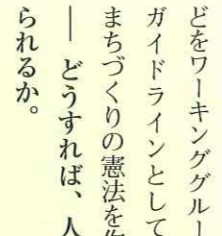 どをワーキンググルー
ガイドラインとして
まちづくりの憲法を
―― どうすれば、人
られるか。